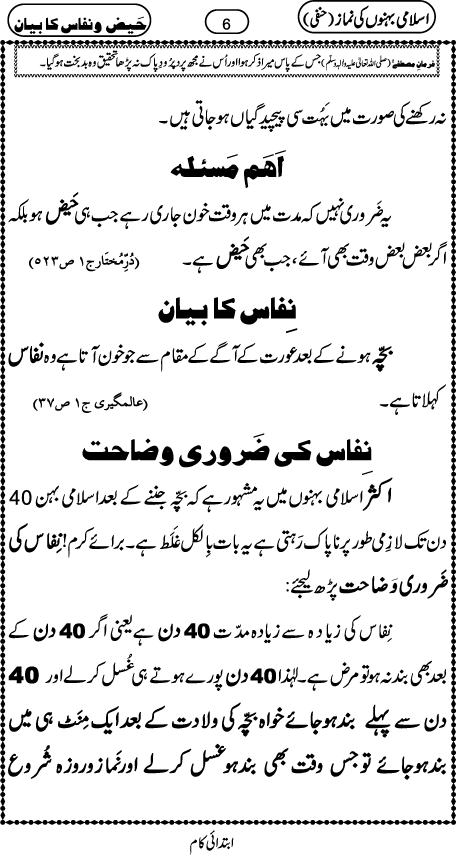 اسلامی بہنوں کی نماز (حنفی)
6
حَیض و نفاس کا بیان
فرمانِ مصطفےٰ (صلی اللہ تعالیٰ علیہ والہٖ وسلم) جس کے پاس میرا ذکر ہوا اور اُس نے مجھ پر دُرُودِ پاک نہ پڑھا تحقیق وہ بد بخت ہو گیا۔
نہ رکھنے کی صورت میں بَہُت سی پیچیدگیاں ہو جاتی ہیں۔
اَھَم مَسئلہ
یہ ضَروری نہیں کہ مدت میں ہر وقت خون جاری رہے جب ہی حَیض ہو بلکہ
اگر بعض بعض وقت بھی آئے، جب بھی حَیض ہے۔ (دُرِّمُختار ج۱ ص۵۲۳)
نِفاس کا بیان
بچّہ ہونے کے بعد عورت کے آگے کے مقام سے جو خون آتا ہے وہ نفاس
کہلاتا ہے۔ (عالمگیری ج۱ ص۳۷)
نِفاس کی ضَروری وضاحت
اکثر اسلامی بہنوں میں یہ مشہور ہے کہ بچّہ جننے کے بعد اسلامی بہن 40
دن تک لازِمی طور پر ناپاک رَہتی ہے یہ بات بِالکل غَلَط ہے۔ برائے کرم! نِفاس کی
ضَروری وَضاحت پڑھ لیجئے:
نِفاس کی زیادہ سے زیادہ مدّت 40 دن ہے یعنی اگر 40 دن کے
بعد بھی بند نہ ہو تو مرض ہے۔ لہٰذا 40 دن پورے ہوتے ہی غُسل کر لے اور 40
دن سے پہلے بند ہو جائے خواہ بچّہ کی ولادت کے بعد ایک مِنَٹ ہی میں
بند ہو جائے تو جس وقت بھی بند ہو غسل کر لے اور نَماز و روزہ شُروع
ابتدائی کام